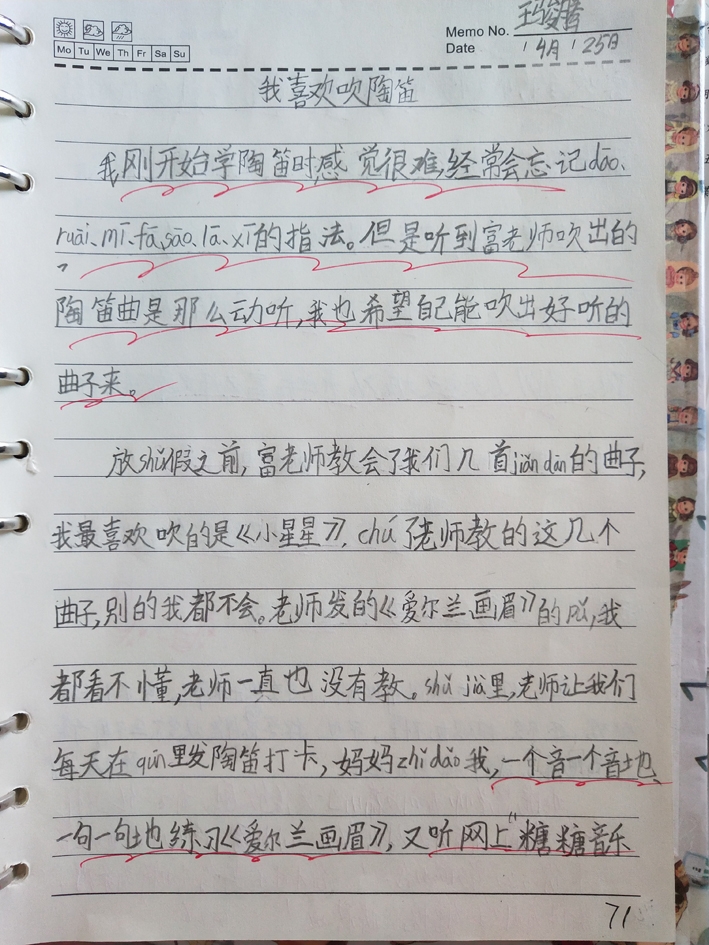 Memo No. 王骏腾
Mo Tu We Th Fr Sa Su
Date / 4月 / 25日
我喜欢吹陶笛
我刚开始学陶笛时,感觉很难,经常会忘记dāo、
ruāi、mī、fā、sāo、lā、xī的指法。但是听到富老师吹出的
陶笛曲是那么动听,我也希望自己能吹出好听的
曲子来。
放shǔ假之前,富老师教会了我们几首jiǎn dān的曲子,
我最喜欢吹的是《小星星》,chú了老师教的这几个
曲子,别的我都不会。老师发的《爱尔兰画眉》的pǔ,我
都看不懂,老师一直也没有教。shǔ jià里,老师让我们
每天在qún里发陶笛打卡,妈妈zhǐ dǎo我,一个音一个音地、
一句一句地练习《爱尔兰画眉》,又听网上“糖糖音乐
71